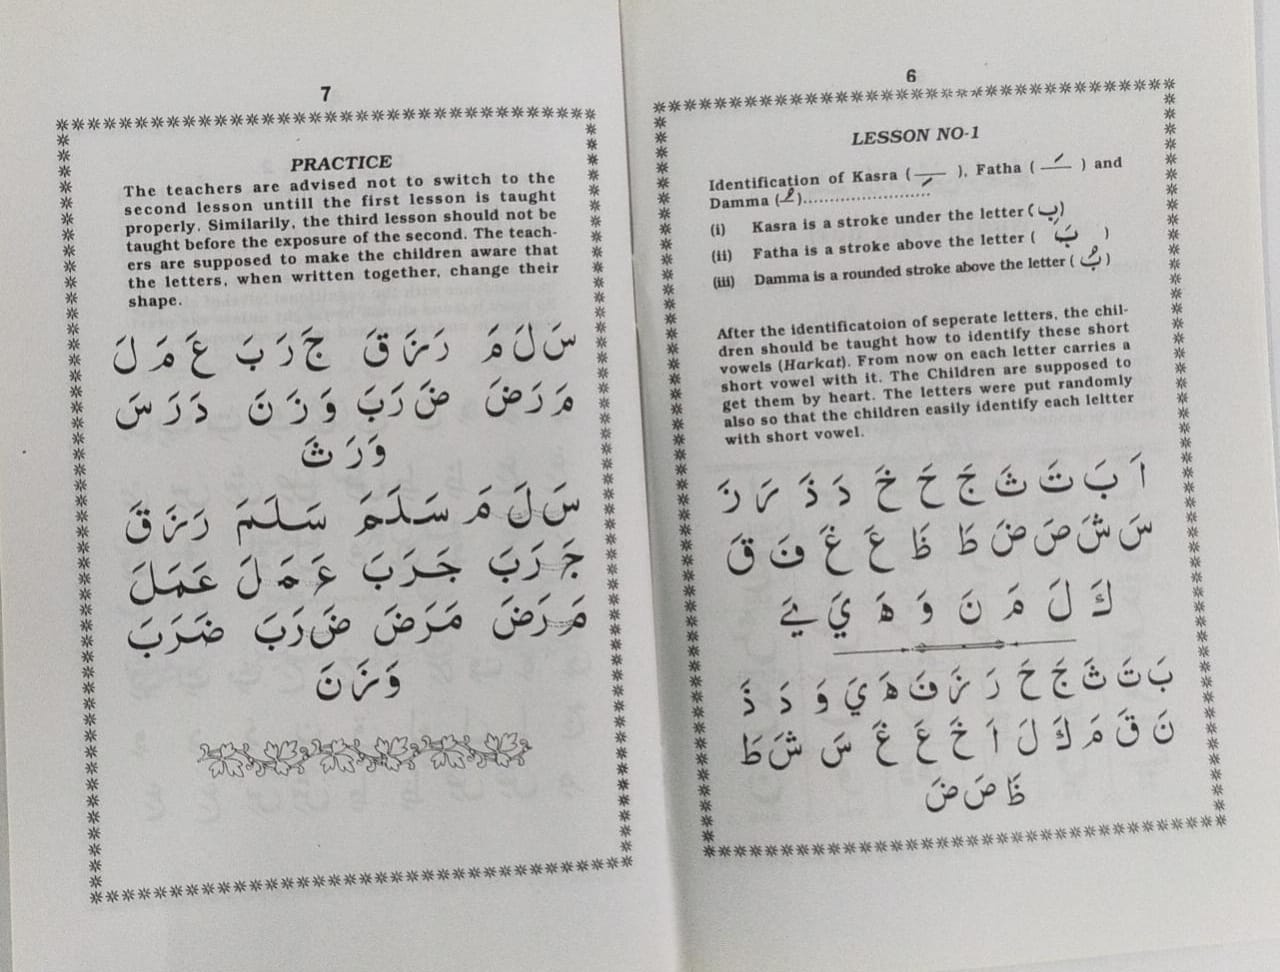 6
LESSON NO-1
Identification of Kasra ( ـِ ), Fatha ( ـَ ) and
Damma (ـُ)........................
(i) Kasra is a stroke under the letter (بِ)
(ii) Fatha is a stroke above the letter ( بَ )
(iii) Damma is a rounded stroke above the letter (بُ)
After the identificatoion of seperate letters, the chil-
dren should be taught how to identify these short
vowels (Harkat). From now on each letter carries a
short vowel with it. The Children are supposed to
get them by heart. The letters were put randomly
also so that the children easily identify each leltter
with short vowel.
اَ بَ تَ ثَ جَ حَ خَ دَ ذَ رَ زَ
سَ شَ صَ ضَ طَ ظَ عَ غَ فَ قَ
كَ لَ مَ نَ وَ هَ يَ يَے
بَ تَ ثَ جَ حَ رَ زَ فَ هَ يَ وَ دَ ذَ
نَ قَ مَ كَ لَ اَ خَ عَ غَ سَ شَ طَ
ظَ صَ ضَ
7
PRACTICE
The teachers are advised not to switch to the
second lesson untill the first lesson is taught
properly. Similarily, the third lesson should not be
taught before the exposure of the second. The teach-
ers are supposed to make the children aware that
the letters, when written together, change their
shape.
سَ لَ مَ رَ زَ قَ جَ رَ بَ عَ مَ لَ
مَ رَ ضَ ضَ رَ بَ وَ زَ نَ دَ رَ سَ
وَ رَ ثَ
سَ لَ مَ سَـلَـمَ سَـلَـمَ رَ زَ قَ
جَ رَ بَ جَـرَبَ عَ مَ لَ عَمَلَ
مَ رَ ضَ مَرَضَ ضَ رَ بَ ضَرَبَ
وَ زَ نَ